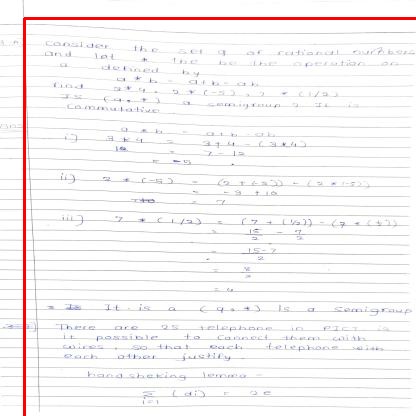 Consider the set Q of rational numbers
and let * the be the operation on
Q defined by
a * b = a+b-ab
find 3*4, 2*(-5), 7 * (1/2)
Is (Q, *) a semigroup? It is
commutative
a * b = a+b-ab
i) 3*4 = 3+4-(3*4)
= 7-12
= -5
ii) 2 * (-5) = (2+(-5))-(2*(-5))
= -3+10
= 7
iii) 7 * (1/2) = (7+(1/2))-(7*(1/2))
= 15/2 - 7/2
= 15-7/2
= 8/2
= 4
It is a (Q, *) Is a semigroup
There are 25 telephone in PICT is
it possible to connect them with
wires, so that each telephone with
each other justify.
handsheking lemma -
Σ i=1 (di) = 2e